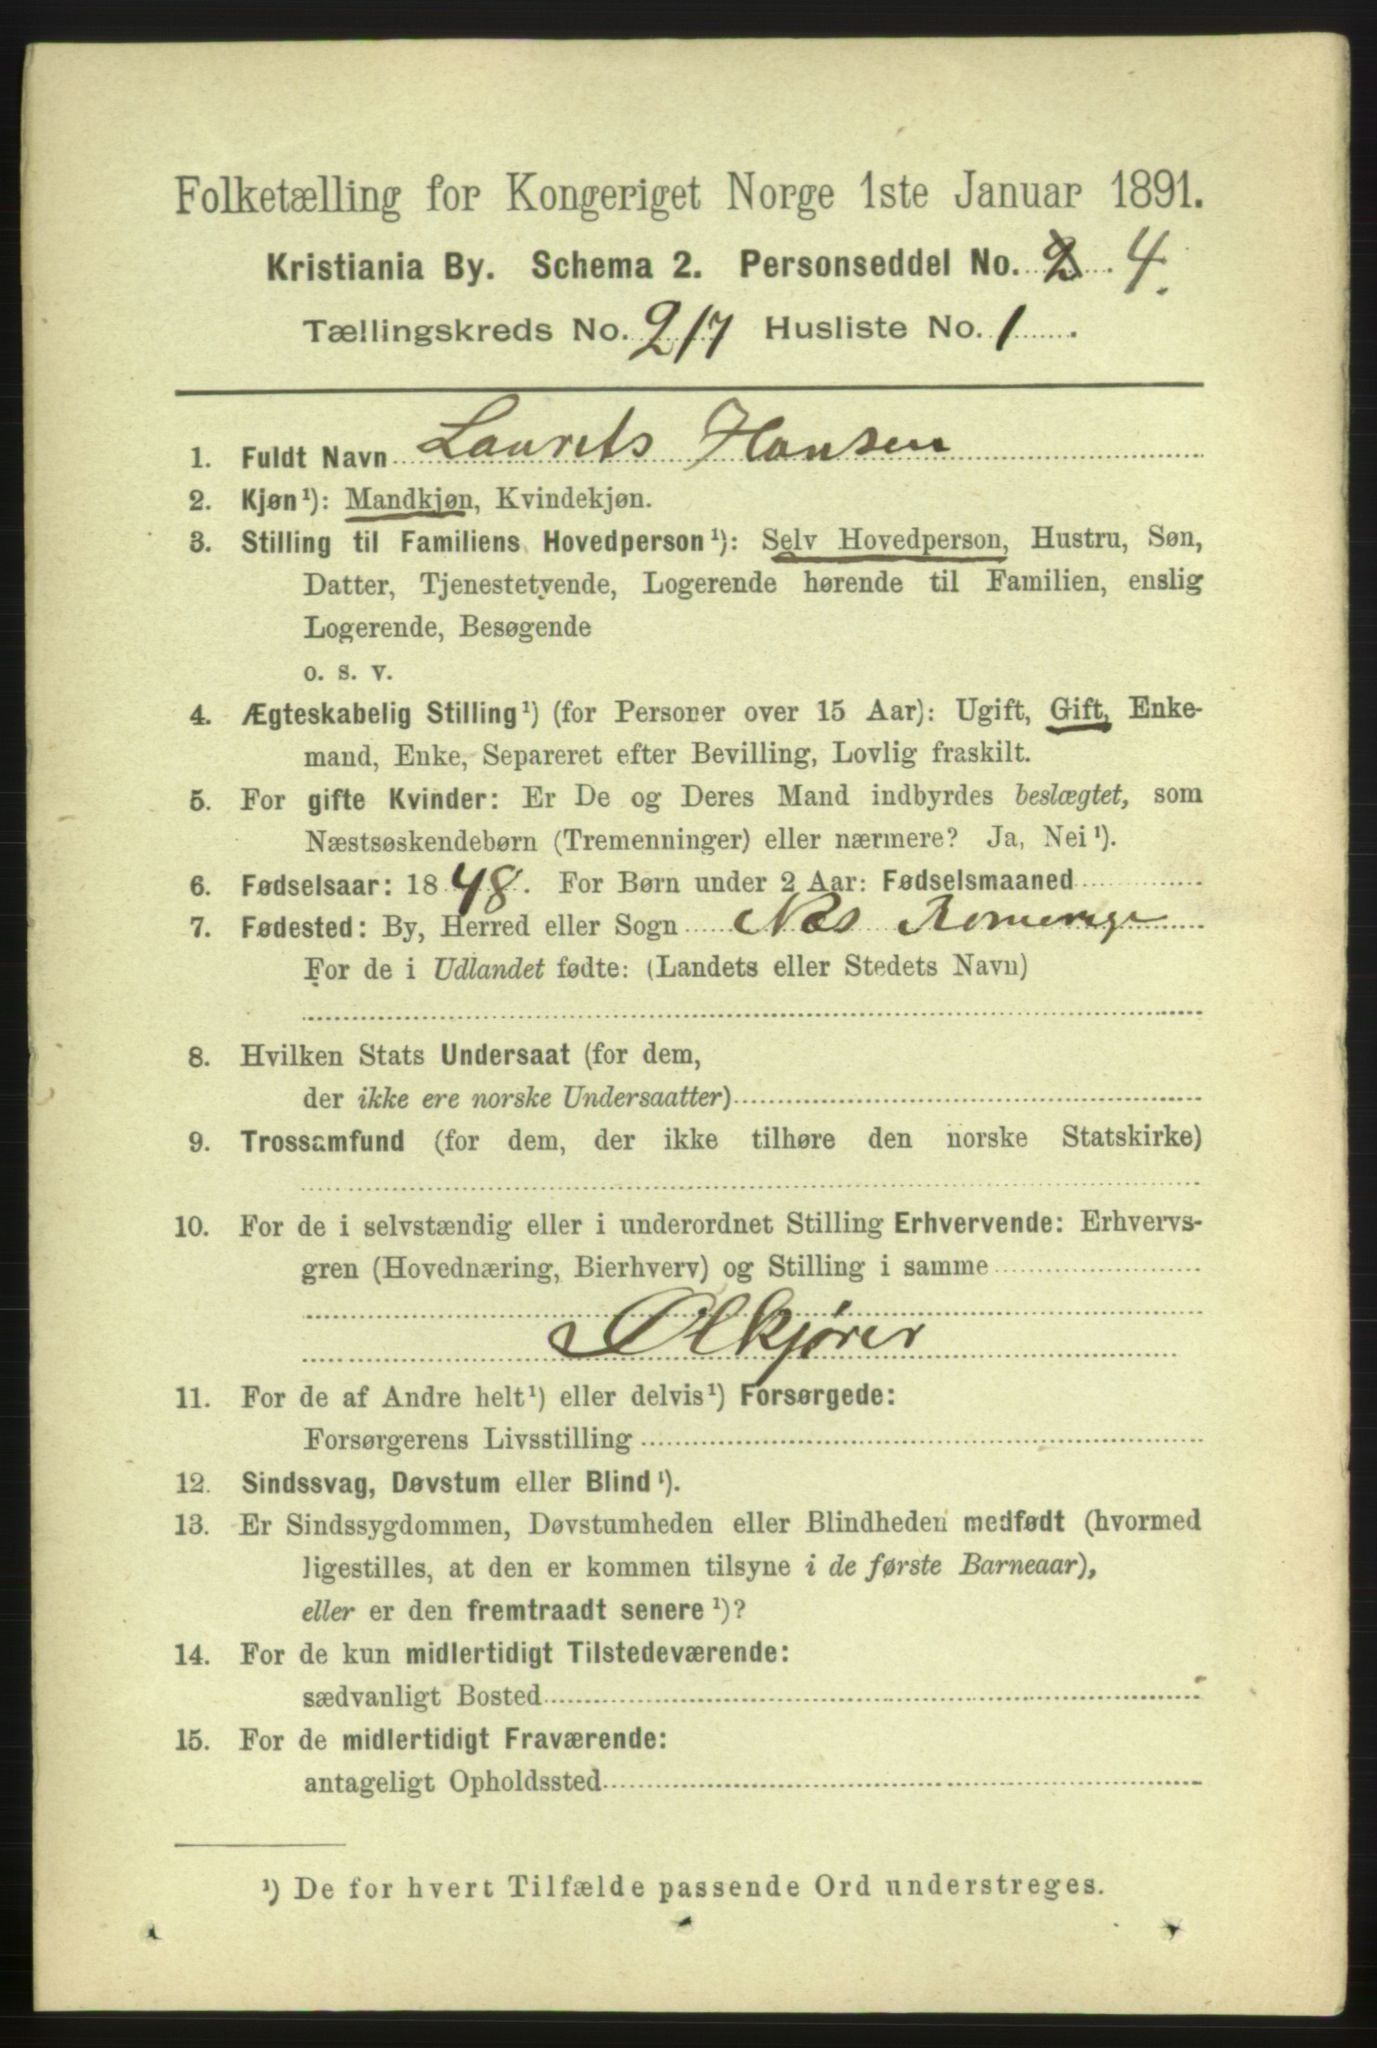 Folketælling for Kongeriget Norge 1ste Januar 1891.
Kristiania By. Schema 2. Personseddel No. 2 4.
Tællingskreds No. 217 Husliste No. 1.
1. Fuldt Navn Laurits Hansen
2. Kjøn¹): Mandkjøn, Kvindekjøn.
3. Stilling til Familiens Hovedperson¹): Selv Hovedperson, Hustru, Søn,
Datter, Tjenestetyende, Logerende hørende til Familien, enslig
Logerende, Besøgende
o. s. v.
4. Ægteskabelig Stilling¹) (for Personer over 15 Aar): Ugift, Gift, Enke-
mand, Enke, Separeret efter Bevilling, Lovlig fraskilt.
5. For gifte Kvinder: Er De og Deres Mand indbyrdes beslægtet, som
Næstsøskendebørn (Tremenninger) eller nærmere? Ja, Nei¹).
6. Fødselsaar: 1848. For Børn under 2 Aar: Fødselsmaaned
7. Fødested: By, Herred eller Sogn Næs Romerige
For de i Udlandet fødte: (Landets eller Stedets Navn)
8. Hvilken Stats Undersaat (for dem,
der ikke ere norske Undersaatter)
9. Trossamfund (for dem, der ikke tilhøre den norske Statskirke)
10. For de i selvstændig eller i underordnet Stilling Erhvervende: Erhvervs-
gren (Hovednæring, Bierhverv) og Stilling i samme
Ølkjører
11. For de af Andre helt¹) eller delvis¹) Forsørgede:
Forsørgerens Livsstilling
12. Sindssvag, Døvstum eller Blind¹).
13. Er Sindssygdommen, Døvstumheden eller Blindheden medfødt (hvormed
ligestilles, at den er kommen tilsyne i de første Barneaar),
eller er den fremtraadt senere¹)?
14. For de kun midlertidigt Tilstedeværende:
sædvanligt Bosted
15. For de midlertidigt Fraværende:
antageligt Opholdssted
¹) De for hvert Tilfælde passende Ord understreges.